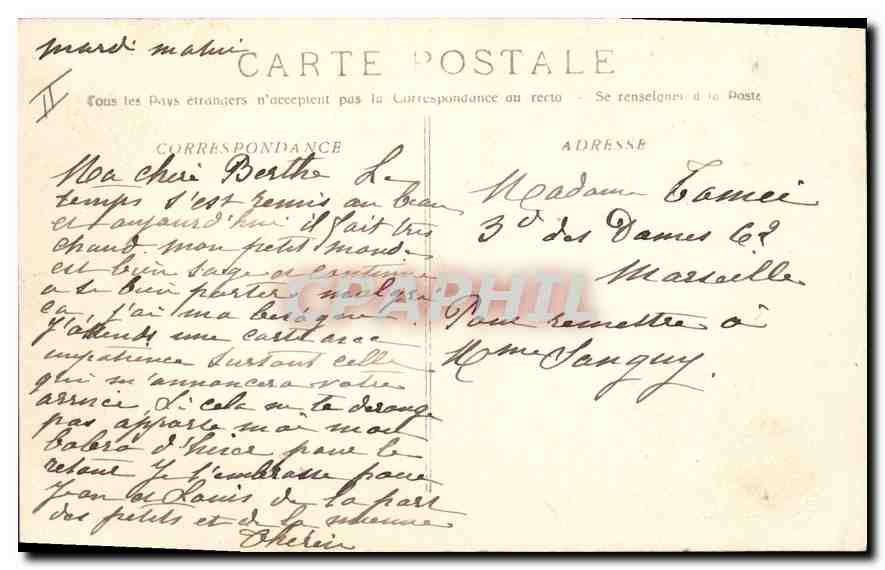 mardi matin
II
CARTE POSTALE
Tous les Pays étrangers n'acceptent pas la Correspondance au recto - Se renseigner à la Poste
CORRESPONDANCE
Ma cheri Berthe Le
temps s'est remis au beau
et aujourd'hui il fait très
chaud mon petit monde
est bien sage et continue
a se bien porter malgré
ca j'ai ma besogne.
J'attends une carte avec
impatience surtout celle
qui m'annoncera votre
arrivée. Si cela ne te derange
pas apporte moi mon
boléro d'hiver pour le
retour Je t'embrasse pour
Jean et Louis de la part
des petits et de la mienne
ADRESSE
Madame
3 Bd des Dames 62
Marseille
Pour remettre à
Mme Sanguy.
CPAPHIL